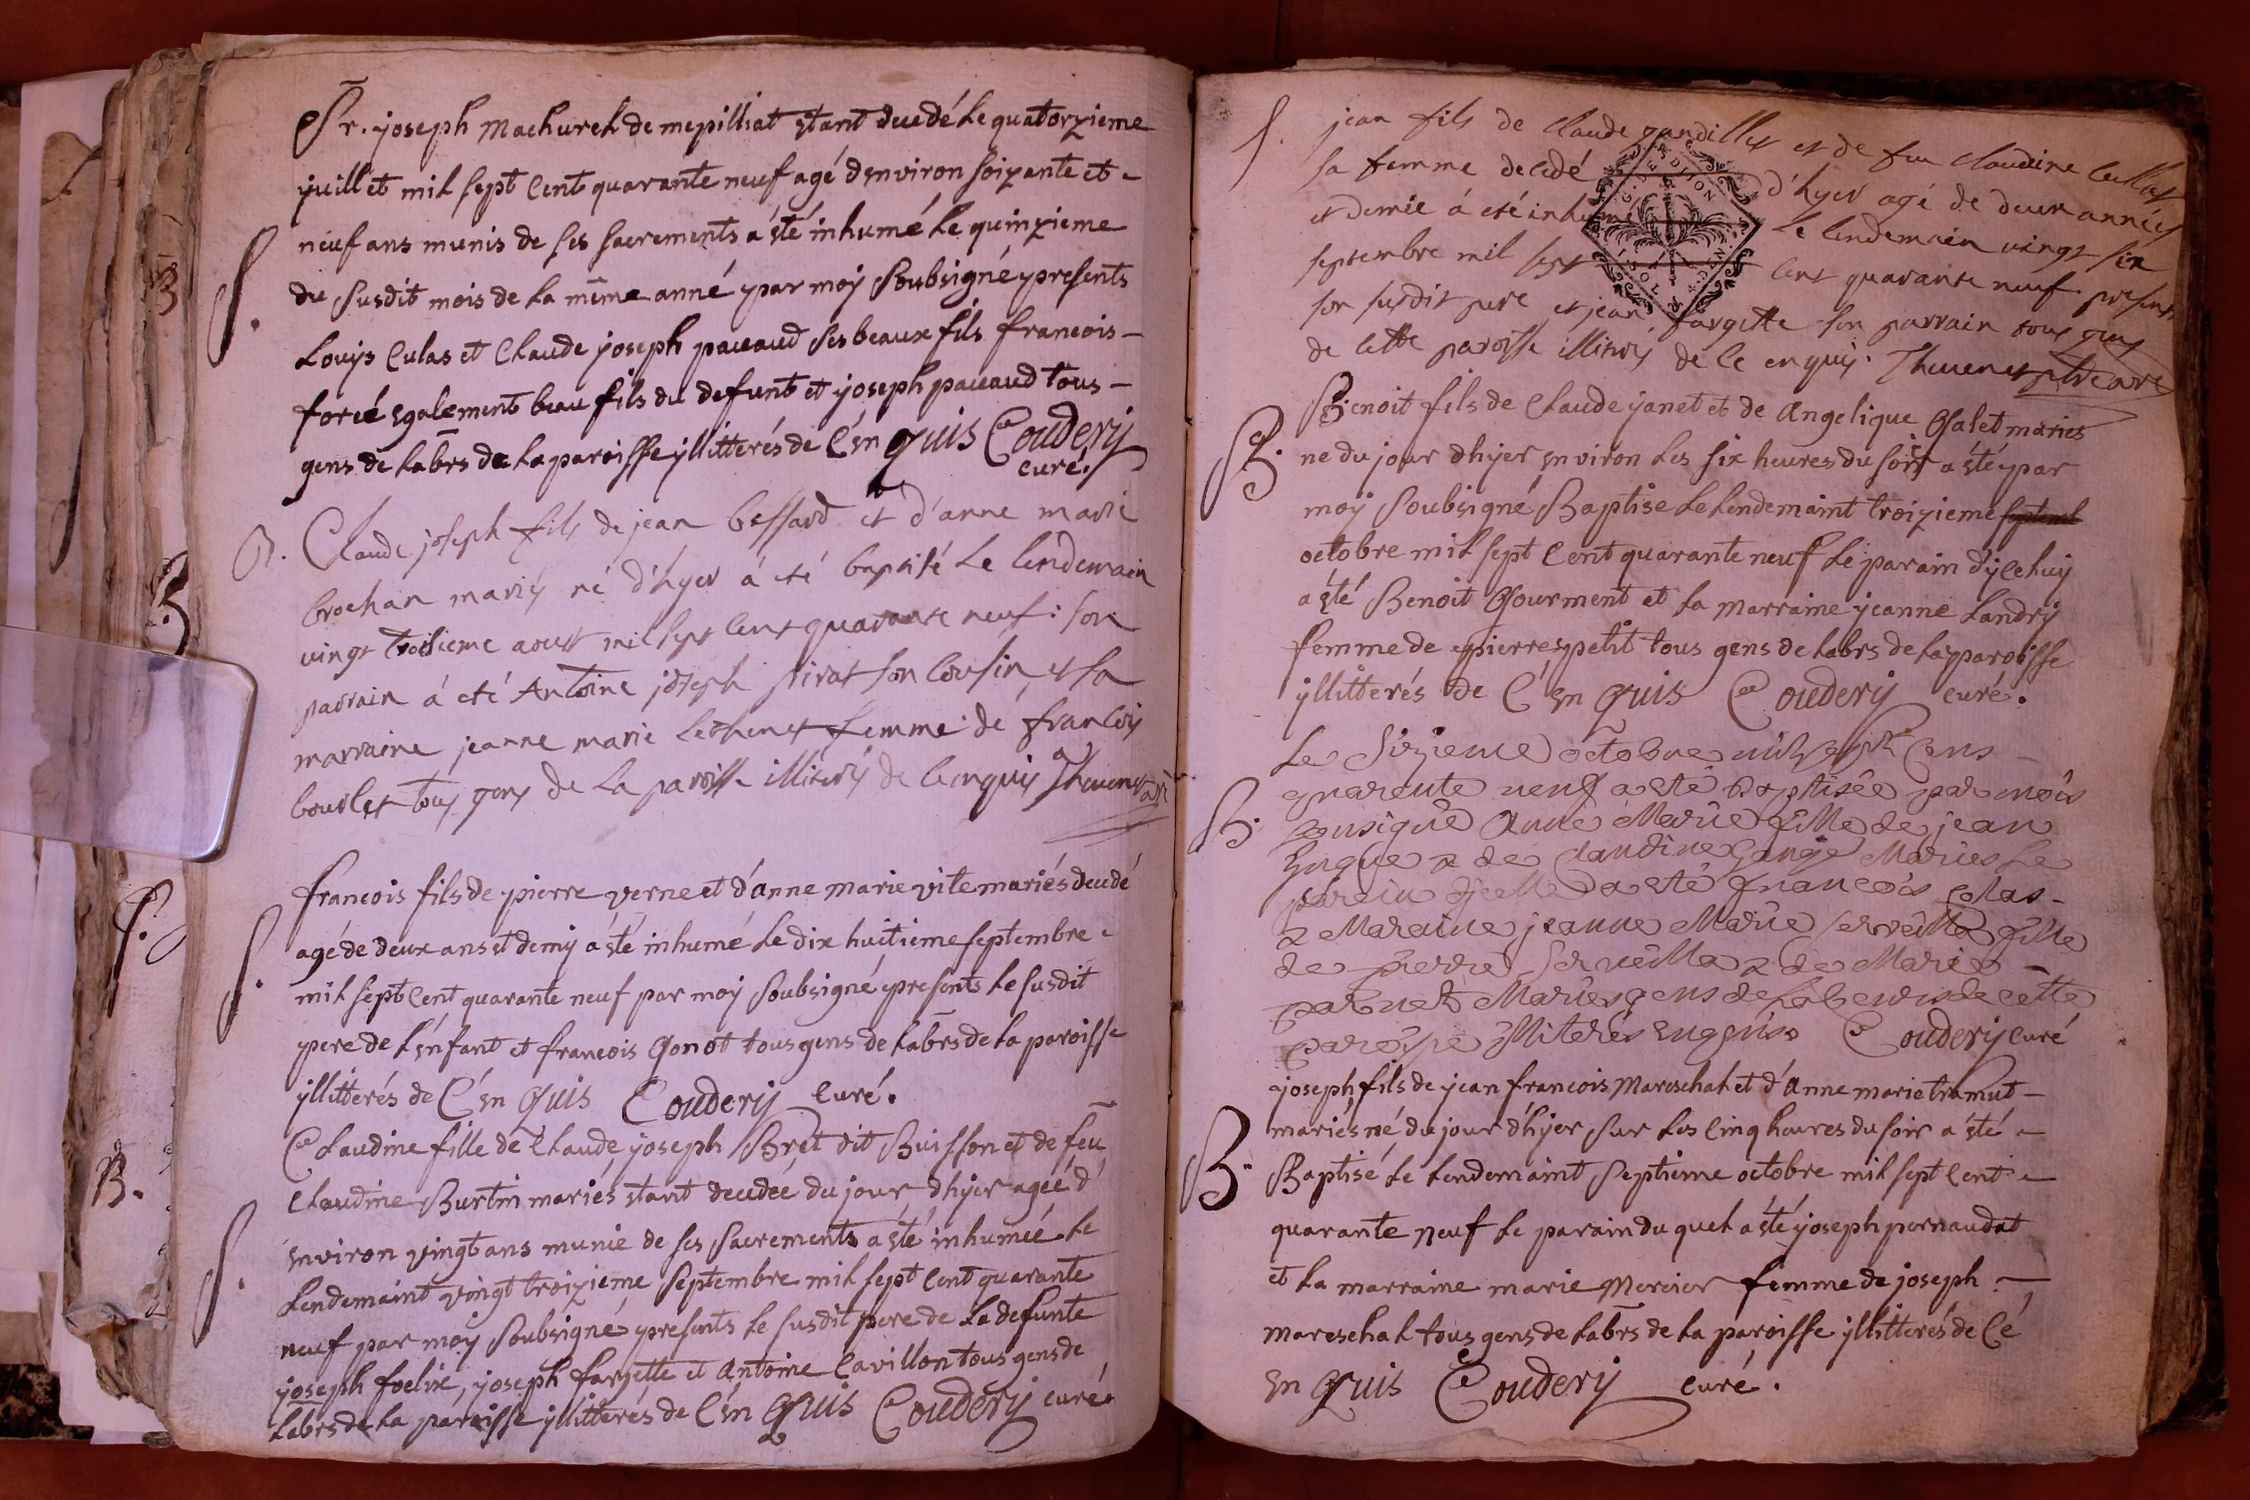 Sr. joseph Machurel de mepilliat étant decedé le quatorzieme
juillet mil sept cent quarante neuf agé d'environ soixante et
neuf ans munis de ses sacrements a été inhumé le quinzieme
S.
du susdit mois de la même anné par moy soubsigné presents
Louys Culas et Claude joseph pauaud ses beaux fils francois
forcé egalement beau fils du defunt et joseph pauaud tous
gens de labrs de la paroisse yllitterés de C'én quis Coudery
curé.
B. Claude joseph fils de jean bessard et d'anne marie
brochan mariés né d'hyer á eté baptisé le lendemain
vingt troisieme aoust mil sept cent quarante neuf : son
parrain á eté Antoine joseph pirat son cousin, et sa
marraine jeanne marie femme de francois
bourlet tous gens de la paroisse illiterés de ce enquis Thevenet
francois fils de pierre verne et d'anne marie vite mariés decedé
agé de deux ans et demy a été inhumé le dix huitieme septembre
S.
mil sept cent quarante neuf par moy soubsigné presents le susdit
pere de l'énfant et francois Gonot tous gens de labrs de la paroisse
yllitterés de C'én quis Coudery curé.
Claudine fille de Claude joseph Bret dit Buisson et de feu
claudine Burtin mariés étant decedée du jour d'hyer agée d'
environ vingt ans munie de ses sacrements a été inhumée le
S.
lendemaint vingt troizieme septembre mil sept cent quarante
neuf par moy soubsigné presents le susdit pere de la defunte
joseph foelix, joseph fargette et antoine Cavillon tous gens de
labrs de la paroisse yllitterés de C'én quis Coudery curé.
S. jean fils de claude gandillet et de feu claudine
sa femme decedé d'hyer agé de deux années
et demie á eté inhumé le lendemain vingt six
septembre mil sept cent quarante neuf presents
son susdit pere et jean fargette son parrain tous gens
de cette paroisse illiterés de ce enquis. Thevenet
Benoit fils de Claude janet et de angelique Galet mariés
B. né du jour d'hyer environ les six heures du soir a été par
moy soubsigné Baptise le lendemaint troizieme
octobre mil sept cent quarante neuf le parain d'yceluy
a été Benoit Gourment et la marraine jeanne Landry
femme de pierre petit tous gens de labrs de la paroisse
yllitterés de C'én quis Coudery curé.
Le sizieme octobre mil sept cens
quarente neuf a eté baptisée par mois
B. sousigné anne Marie fille de jean
& de Claudine Mariés le
parain d'jcelle a eté francois Colas
& Maraine jeanne Marie fille
de pierre & de Marie
Mariés gens de de cette
paroisse illiterés enquis Coudery curé
joseph fils de jean francois Mareschal et d'anne marie tramut
mariés né du jour d'hyer sur les cinq heures du soir a été
B. Baptisé le lendemaint septieme octobre mil sept cent
quarante neuf le parain du quel a été joseph pernaudat
et la marraine marie Mercier femme de joseph
mareschal tous gens de labrs de la paroisse yllitterés de Cé
en quis Coudery curé.